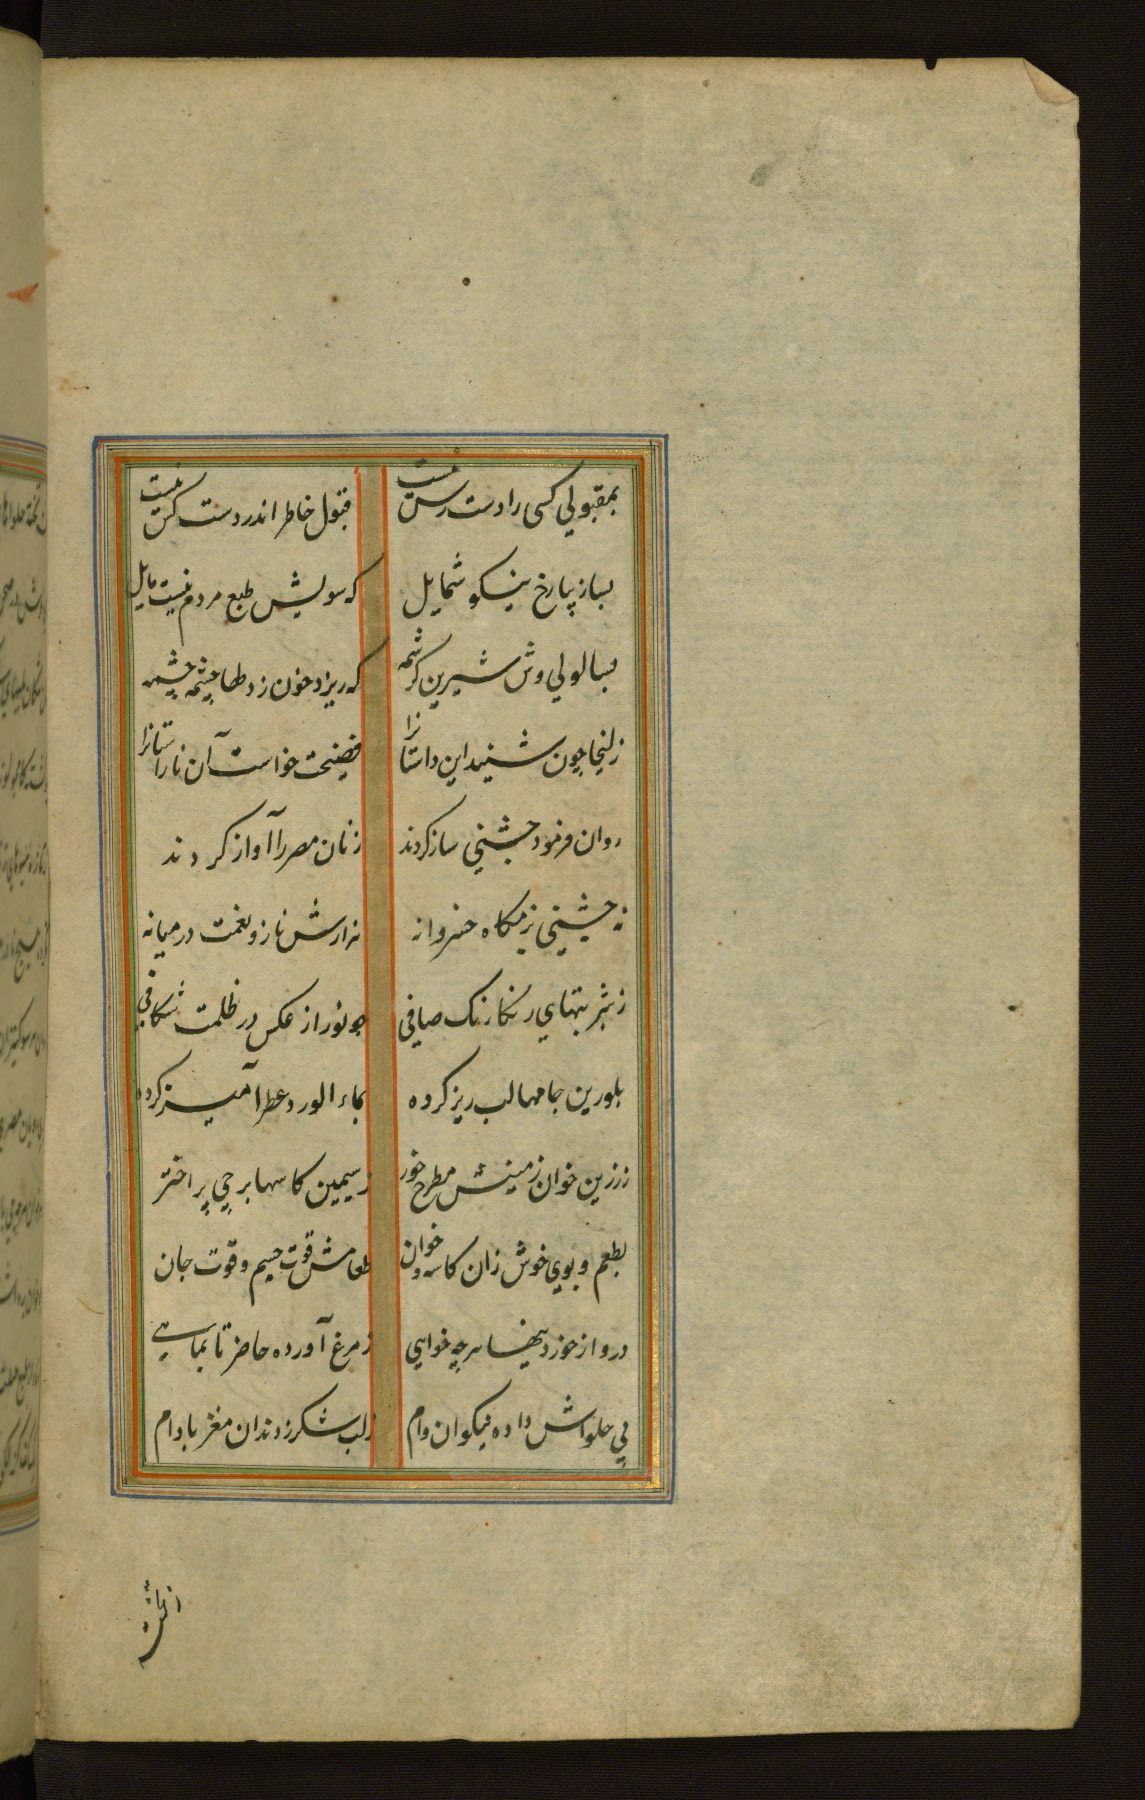 بمقبولي کسی را دست رس نیست قبول خاطر اندر دست کس نیست
بسا زیبا رخ نیکو شمایل که سویش طبع مردم نیست مایل
بسا لولي وش شیرین کرشمه که ریزد خون ز دلها چشمه چشمه
زلیخا چون شنید این داستانرا فضیحت خواست آن ناراستانرا
روان فرمود جشني ساز کردند زنان مصر را آواز کردند
نه جشني بزمکاه خسروانه هزارش ناز و نعمت در میانه
ز شربتهاي رنکارنک صافي چو نور از عکس در ظلمت شکافي
بلورین جامها لب ریز کرده بماء الورد عطر آمیز کرده
ز زرین خوان زمینش مطرح خور ز سیمین کاسها برجي پر اختر
بطعم و بوي خوش زان کاسه و خوان طعامش قوت جسم و قوت جان
درو از خوردنیها هر چه خواهي ز مرغ آورده حاضر تا بماهي
پي حلواش داده نیکوان وام ز لب شکر ز دندان مغز بادام